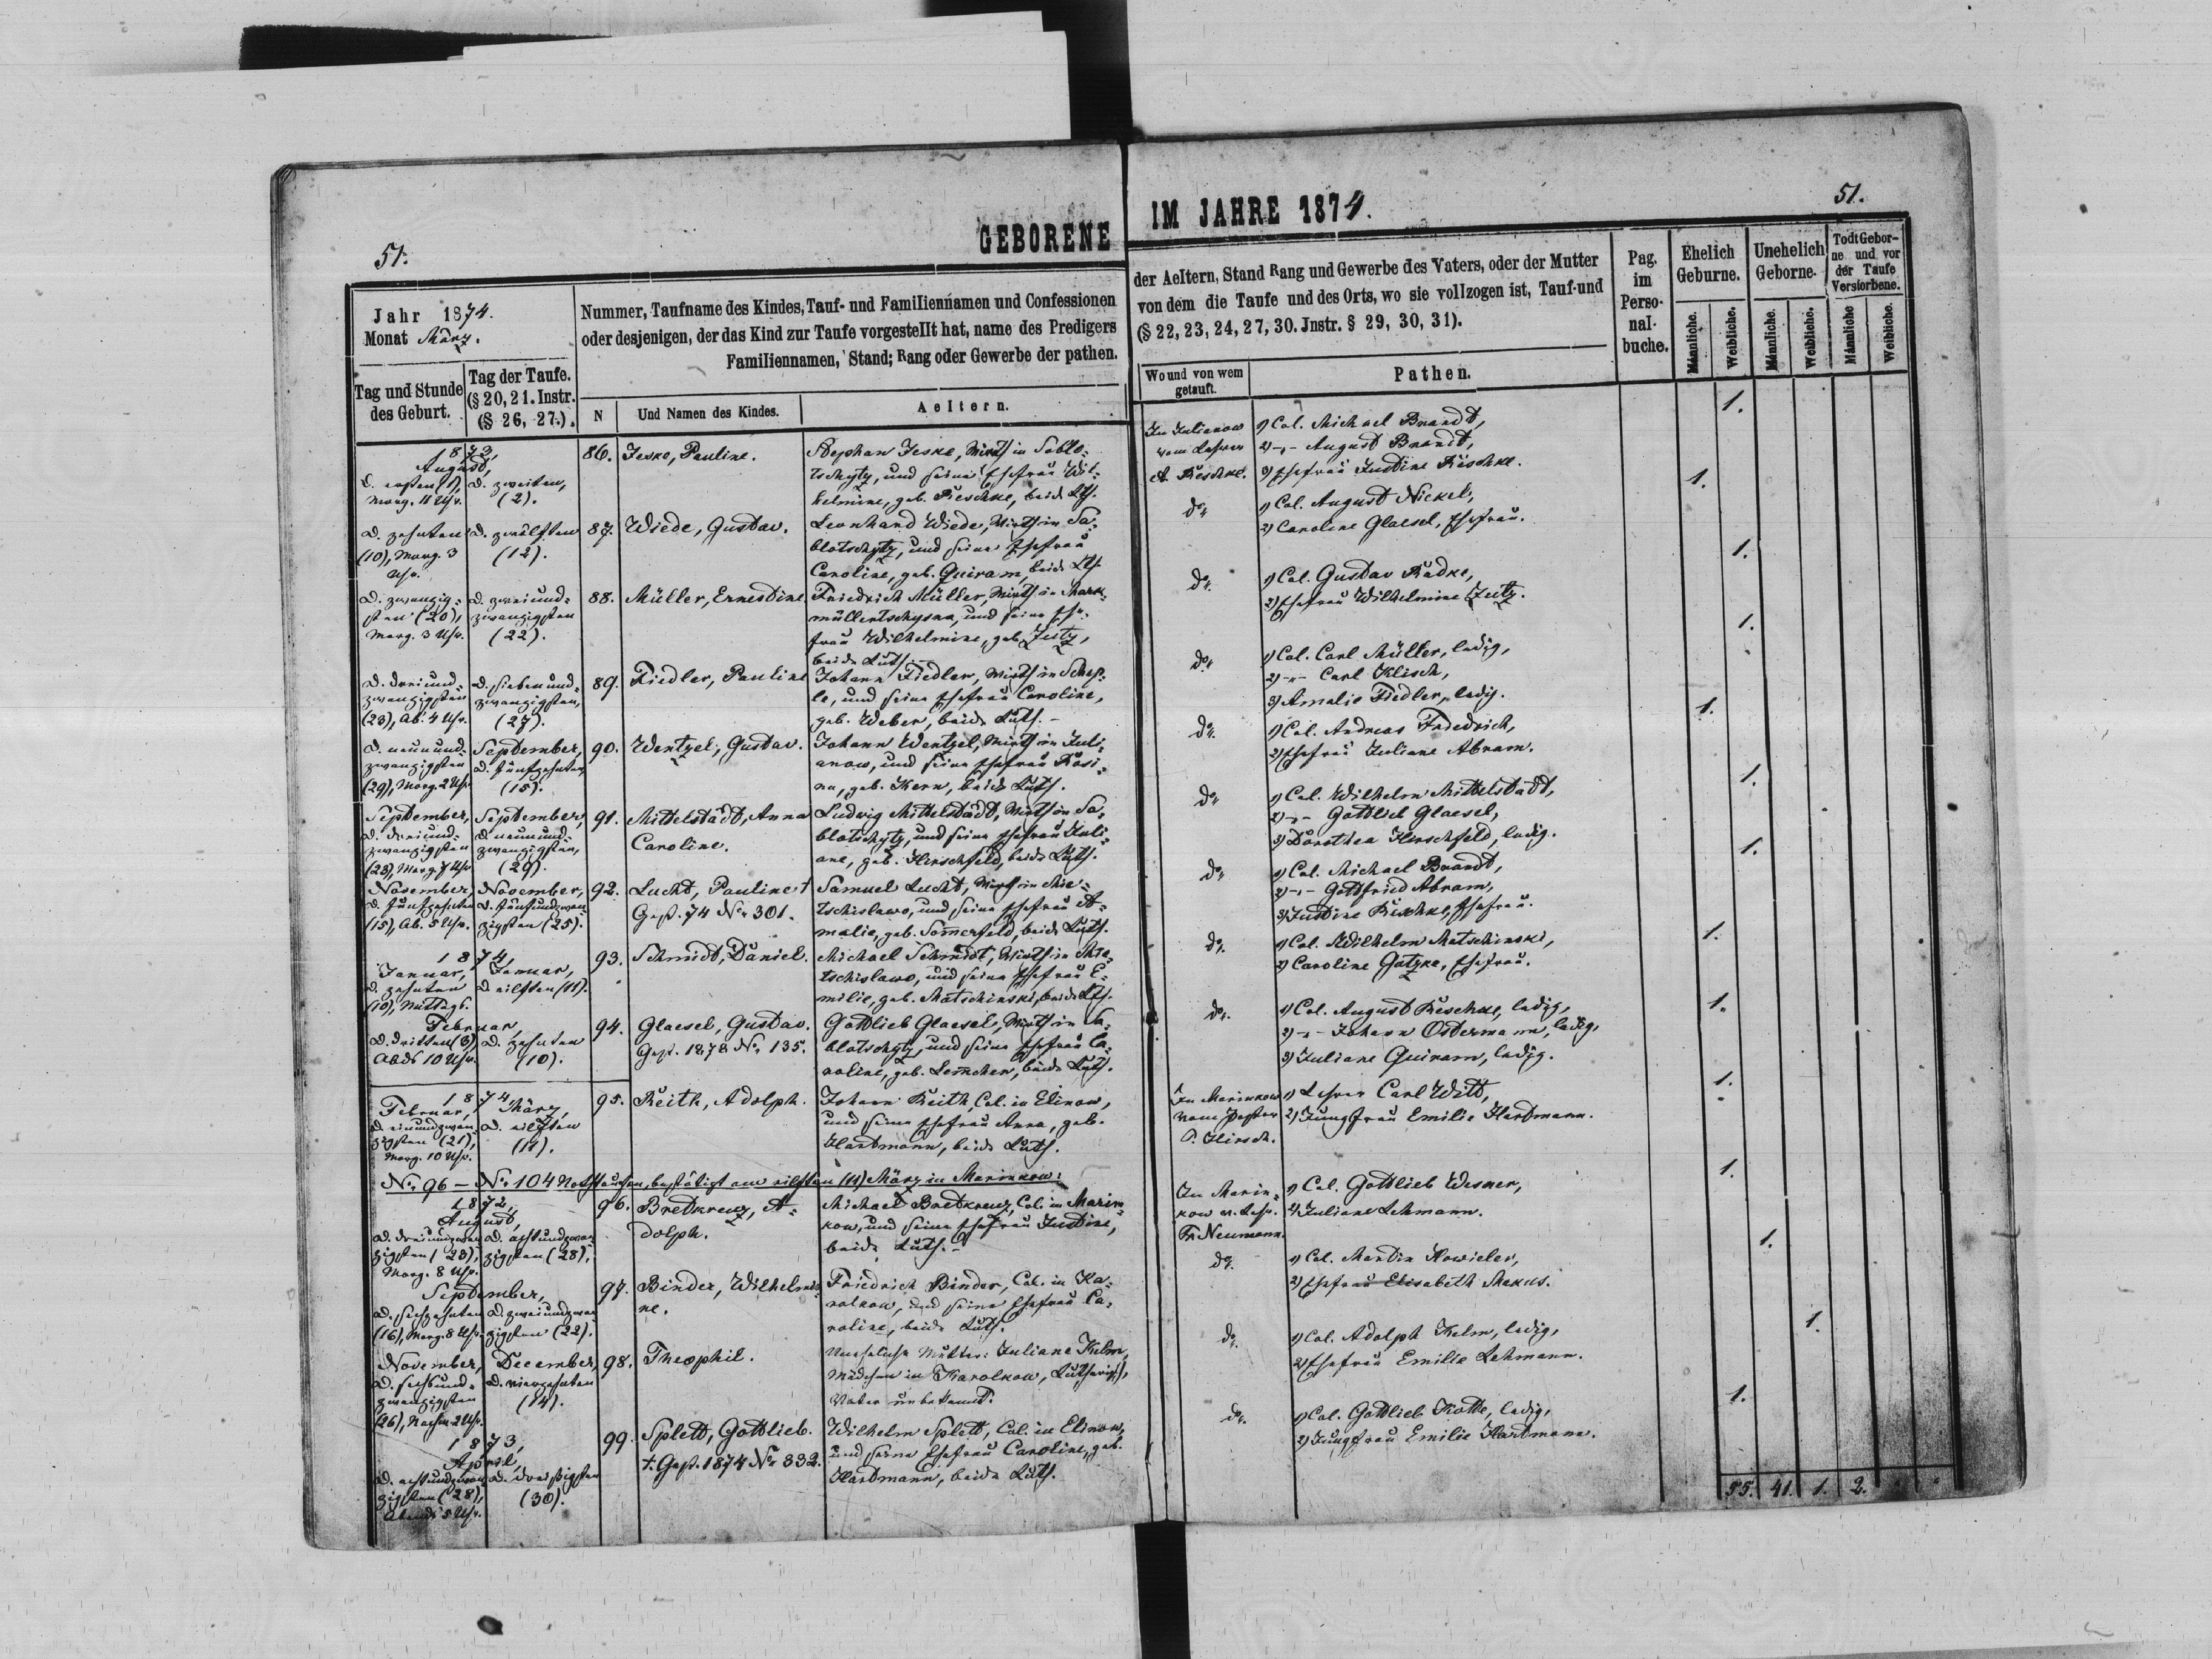 51.
GEBORENE
Jahr 1874.
Monat März.
Nummer, Taufname des Kindes, Tauf- und Familiennamen und Confessionen
oder desjenigen, der das Kind zur Taufe vorgestellt hat, name des Predigers
Familiennamen, Stand; Rang oder Gewerbe der pathen.
Tag und Stunde
des Geburt.
Tag der Taufe.
(§ 20, 21. Instr.
(§ 26, 27.).
N
Und Namen des Kindes.
Aeltern.
1873,
August,
d. ersten (1),
Morg. 11 Uhr.
d. zweiten,
(2).
86.
Jeske, Pauline.
Stephan Jeske, Wirth in Sablo-
tschytz, und seine Ehefrau Wil-
helmine, geb. Rieschke, beide Lth.
d. zehnten
(10), Morg. 3
Uhr.
d. zwölften
(12).
87.
Wiede, Gustav.
Leonhard Wiede, Wirth in Sa-
blotschytz, und seine Ehefrau
Caroline, geb. Quiram, beide Lth.
d. zwanzig-
sten (20),
Morg. 3 Uhr.
d. zweiund-
zwanzigsten
(22).
88.
Müller, Ernestine.
Friedrich Müller, Wirth in
und seine Ehe-
frau Wilhelmine, geb. Zeitz,
beide Luth.
d. dreiund-
zwanzigsten
(23), Ab. 4 Uhr.
d. siebenund-
zwanzigsten,
(27).
89.
Fiedler, Pauline
Johann Fiedler, Wirth in
und seine Ehefrau Caroline,
geb. Weber, beide Luth. -
d. neunund-
zwanzigsten
(29), Morg. 2 Uhr
September,
d. fünfzehnten
(15).
90.
Wentzel, Gustav.
Johann Wentzel, Wirth in Juli-
anow, und seine Ehefrau Rosi-
na, geb. Kern, beide Luth.
September,
d. dreiund-
zwanzigsten
(23), Morg. 7 Uhr
September,
d. neunund-
zwanzigsten,
(29).
91.
Mittelstädt, Anna
Caroline.
Ludwig Mittelstädt, Wirth in Sa-
blotschytz, und seine Ehefrau Juli-
ane, geb. Hirschfeld, beide Luth.
November,
d. fünfzehnten
(15), Ab. 5 Uhr.
November,
d. fünfundzwan-
zigsten (25).
92.
Lucht, Pauline †
Gest. 74 No. 301.
Samuel Lucht, Wirth in Mie-
tschislawo, und seine Ehefrau A-
malie, geb. Somerfeld, beide Luth.
1874,
Januar,
d. zehnten
(10), Mittags.
Januar,
d. eilften (11).
93.
Schmidt, Daniel.
Michael Schmidt, Wirth in Mie-
tschislawo, und seine Ehefrau E-
milie, geb. Matschinski, beide Lth.
Februar,
d. dritten (3)
Abds 10 Uhr.
d. zehnten
(10).
94.
Glaesel, Gustav.
Gest. 1878 No. 135.
Gottlieb Glaesel, Wirth in Sa-
blotschytz, und seine Ehefrau Ca-
roline, geb. Lemchen, beide Luth.
1874,
Februar,
d. einundzwan-
zigsten (21),
Morg. 10 Uhr.
März,
d. eilften
(11).
95.
Reith, Adolph.
Johann Reith, Col. in Elinow,
und seine Ehefrau Anna, geb.
Hartmann, beide Luth.
No. 96 - No. 104 Nothtaufen, bestätigt am eilften (11) März in Marinkow:
1872,
August,
d. dreiundzwan-
zigsten (23),
Morg. 8 Uhr.
d. achtundzwan-
zigsten (28),
96.
Bretkreuz, A-
dolph.
Michael Bretkreuz, Col. in Marin-
kow, und seine Ehefrau Justine,
beide Luth. -
September,
d. sechzehnten
(16), Morg. 8 Uhr.
d. zweiundzwan-
zigsten (22).
97.
Binder, Wilhelmi-
ne.
Friedrich Binder, Col. in Ka-
rolkow, und seine Ehefrau Ca-
roline, beide Luth.
November,
d. sechsund-
zwanzigsten
(26), Nachm. 2 Uhr.
December,
d. vierzehnten
(14).
98.
Theophil.
Uneheliche Mutter: Juliane Kelm,
Mädchen in Karolkow,
Vater unbekannt.
1873,
April,
d. achtundzwan-
zigsten (28),
Abends 5 Uhr.
d. dreißigsten
(30).
99.
Splett, Gottlieb.
†. Gest. 1874 No. 332.
Wilhelm Splett, Col. in Elinow,
und seine Ehefrau Caroline, geb.
Hartmann, beide Luth.
IM JAHRE 1874.
51.
der Aeltern, Stand Rang und Gewerbe des Vaters, oder der Mutter
von dem die Taufe und des Orts, wo sie vollzogen ist, Tauf-und
(§ 22, 23, 24, 27, 30. Jnstr. § 29, 30, 31).
Wo und von wem
getauft.
Pathen.
Pag.
im
Perso-
nal-
buche.
Ehelich
Geburne.
Unehelich
Geborne.
Todt Gebor-
ne und vor
der Taufe
Versiorbene.
Männliche.
Weibliche.
Männliche.
Weibliche.
Männliche
Weibliche.
In Julianow
vom Lehrer
A. Rieschke.
1) Col. Michael Brandt,
2) -„- August Brandt,
3) Ehefrau Justine Rieschke.
1.
do.
1) Col. August Nickel,
2) Caroline Glaesel, Ehefrau.
1.
do.
1) Col. Gustav Radke,
2) Ehefrau Wilhelmine Zeitz.
1.
do.
1) Col. Carl Müller, ledig,
2) -„- Carl Klisch,
3) Amalie Fiedler, ledig.
1.
do.
1) Col. Andreas Friedrich,
2) Ehefrau Juliane Abram.
1.
do.
1) Col. Wilhelm Mittelstädt,
2) -„- Gottlieb Glaesel,
3) Dorothea Hirschfeld, ledig.
1.
do.
1) Col. Michael Brandt,
2) -„- Gottfried Abram,
3) Justine Rieschke, Ehefrau.
1.
do.
1) Col. Wilhelm Matschinski,
2) Caroline Gatzke, Ehefrau.
1.
do.
1) Col. August Rieschke, ledig,
2) -„- Johann Ostermann, ledig,
3) Juliane Quiram, ledig.
1.
In Marinkow
vom Pastor
P. Hirsch.
1) Lehrer Carl Witt,
2) Jungfrau Emilie Hartmann.
1.
In Marin-
kow v. Lehr.
Fr. Neumann.
1) Col. Gottlieb Wesner,
2) Juliane Lehmann.
1.
do.
1) Col. Martin
2) Ehefrau Elisabeth
1.
do.
1) Col. Adolph Kelm, ledig,
2) Ehefrau Emilie Lehmann.
1.
do.
1) Col. Gottlieb Kotte, ledig,
2) Jungfrau Emilie Hartmann.
1.
55. 41. 1. 2.